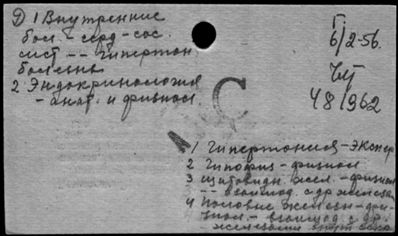 Д 1 Внутренние
бол. - серд-сос.
сист -- гипертон.
болезнь
2 Эндокринология
- анат. и физиол.
6/2-56.
48/962
С
1 Гипертония - экспер
2 Гипофиз - физиол
3 Щитовидн. жел. - физиол
-- взаимод. с др. железам
4 Половые железы - фи-
зиол. - взаимод. с др.
железами внутр